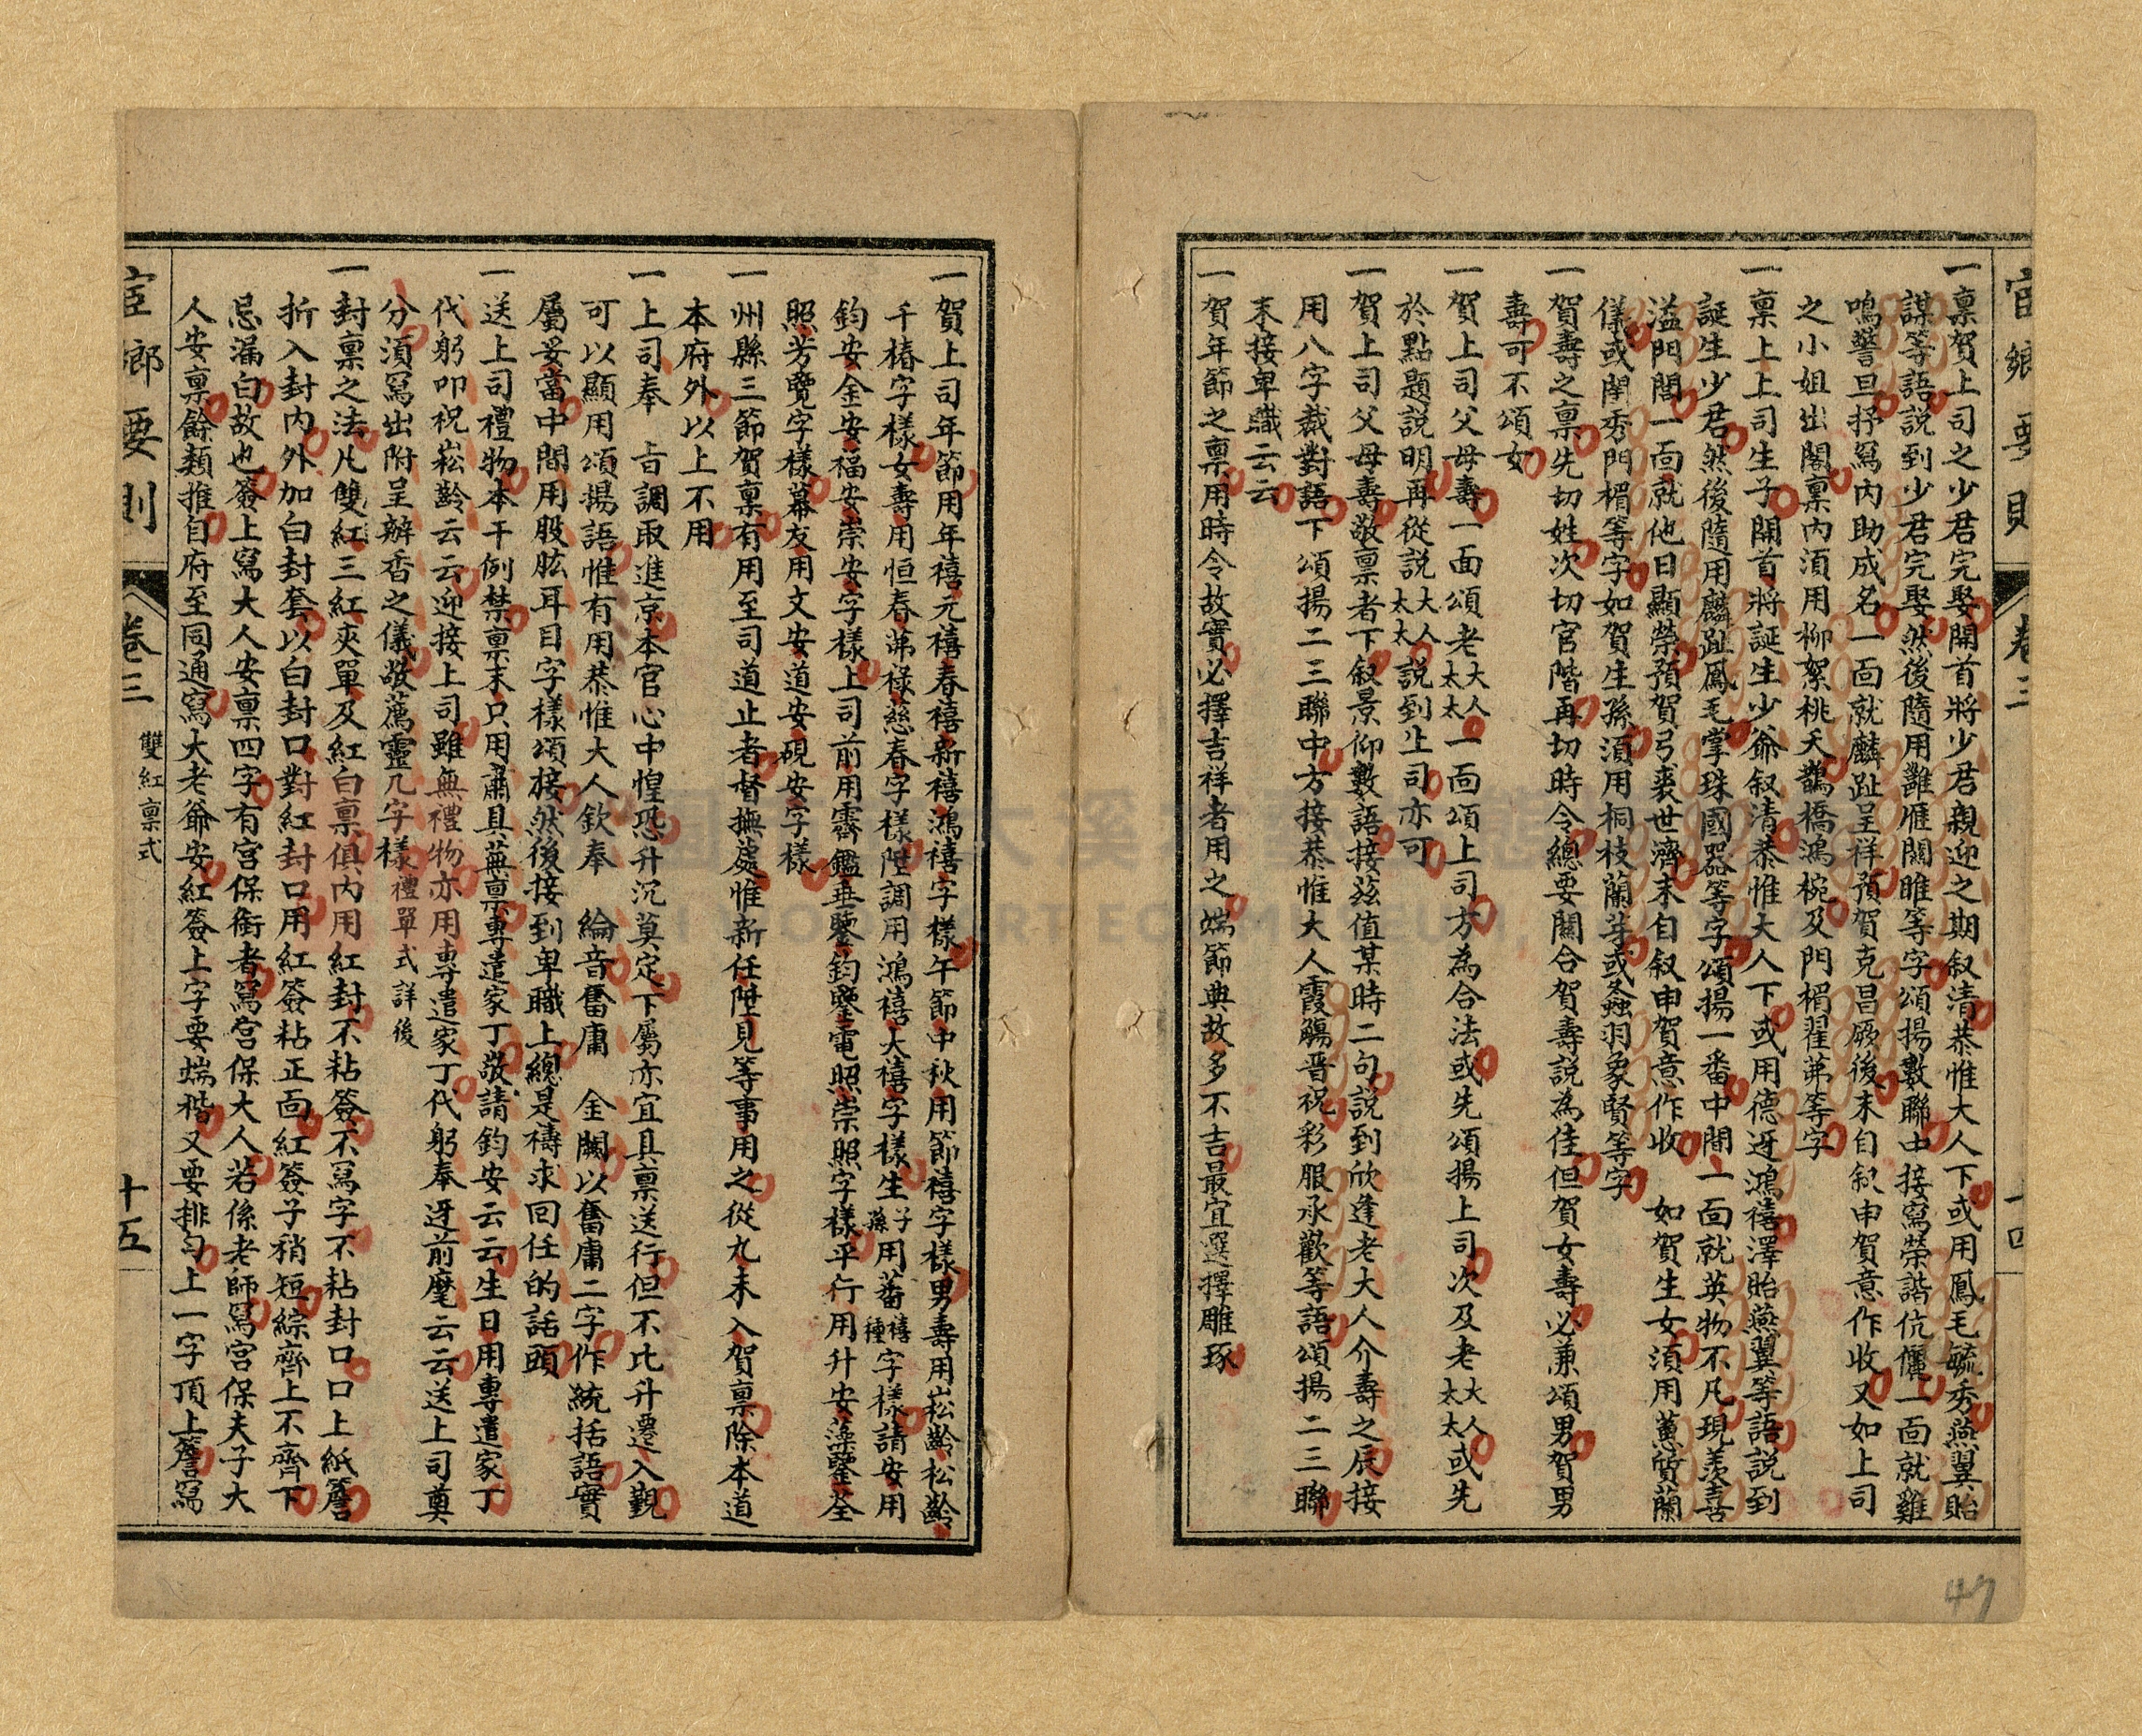 宦鄉要則 卷三 十四
一禀賀上司之少君完娶開首將少君親迎之期叙清恭惟大人下或用鳳毛毓秀燕翼貽
謀等語説到少君完娶然後隨用鸝雁關睢等字頌揚數聯中接寫榮諧伉儷一面就雞
鳴警旦抒寫內助成名一面就麟趾呈祥預賀克昌厥後末自叙申賀意作收又如上司
之小姐出閣禀內須用柳絮桃夭鵲橋鴻椀及門楣翟茀等字
一禀上上司生子開首將誕生少爺叙清恭惟大人下或用德迓鴻禧澤貽燕翼等語説到
誕生少君然後隨用麟趾鳳毛掌珠國器等字頌揚一番中間一面就英物不凡現羨喜
溢門閭一面就他日顯榮預賀弓裘世濟末自叙申賀意作收　如賀生女須用蕙質蘭
儀或閨秀門楣等字如賀生孫須用桐枝蘭芽或螽羽象賢等字
一賀壽之禀先切姓次切官階再切時令總要關合賀壽説為佳但賀女壽必兼頌男賀男
壽可不頌女
一賀上司父母壽一面頌老大人太太一面頌上司方為合法或先頌揚上司次及老大人太太或先
於點題説明再從説大人太太説到上司亦可
一賀上司父母壽敬禀者下叙景仰數語接茲值某時二句説到欣逢老大人介壽之辰接
用八字裁對語下頌揚二三聯中方接恭惟大人霞觴晋祝彩服承歡等語頌揚二三聯
末接卑職云云
一賀年節之禀用時令故實必擇吉祥者用之端節典故多不吉最宜選擇雕琢
一賀上司年節用年禧元禧春禧新禧鴻禧字樣午節中秋用節禧字樣男壽用崧齡松齡
千椿字樣女壽用恒春茀祿慈春字樣陞調用鴻禧大禧字樣生子孫用蕃禧種字樣請安用
鈞安金安福安崇安字樣上司前用霽鑑垂鑒鈞鑒電照崇照字樣平行用升安藻鑒荃
照芳覽字樣幕友用文安道安硯安字樣
一州縣三節賀禀有用至司道止者督撫處惟新任陞見等事用之從九未入賀禀除本道
本府外以上不用
一上司奉　旨調取進京本官心中惶恐升沉莫定下屬亦宜具禀送行但不比升遷入覲
可以顯用頌揚語惟有用恭惟大人欽奉　綸音奮庸　金闕以奮庸二字作統括語實
屬妥當中間用股肱耳目字樣頌接然後接到卑職上總是禱求回任的話頭
一送上司禮物本干例禁禀末只用肅具蕪禀專遣家丁敬請鈞安云云生日用專遣家丁
代躬叩祝崧齡云云迎接上司雖無禮物亦用專遣家丁代躬奉迓前麾云云送上司奠
分須寫出附呈辦香之儀敬薦靈几字樣禮單式詳後
一封禀之法凡雙紅三紅夾單及紅白禀俱內用紅封不粘簽不寫字不粘封口口上紙簷
折入封內外加白封套以白封口對紅封口用紅簽粘正面紅簽子稍短綜齊上不齊下
忌漏白故也簽上寫大人安禀四字有宮保銜者寫宮保大人若係老師寫宮保夫子大
人安禀餘類推自府至同通寫大老爺安紅簽上字要端楷又要排勻上一字頂上簷寫
宦鄉要則 卷三 雙紅禀式 十五
47